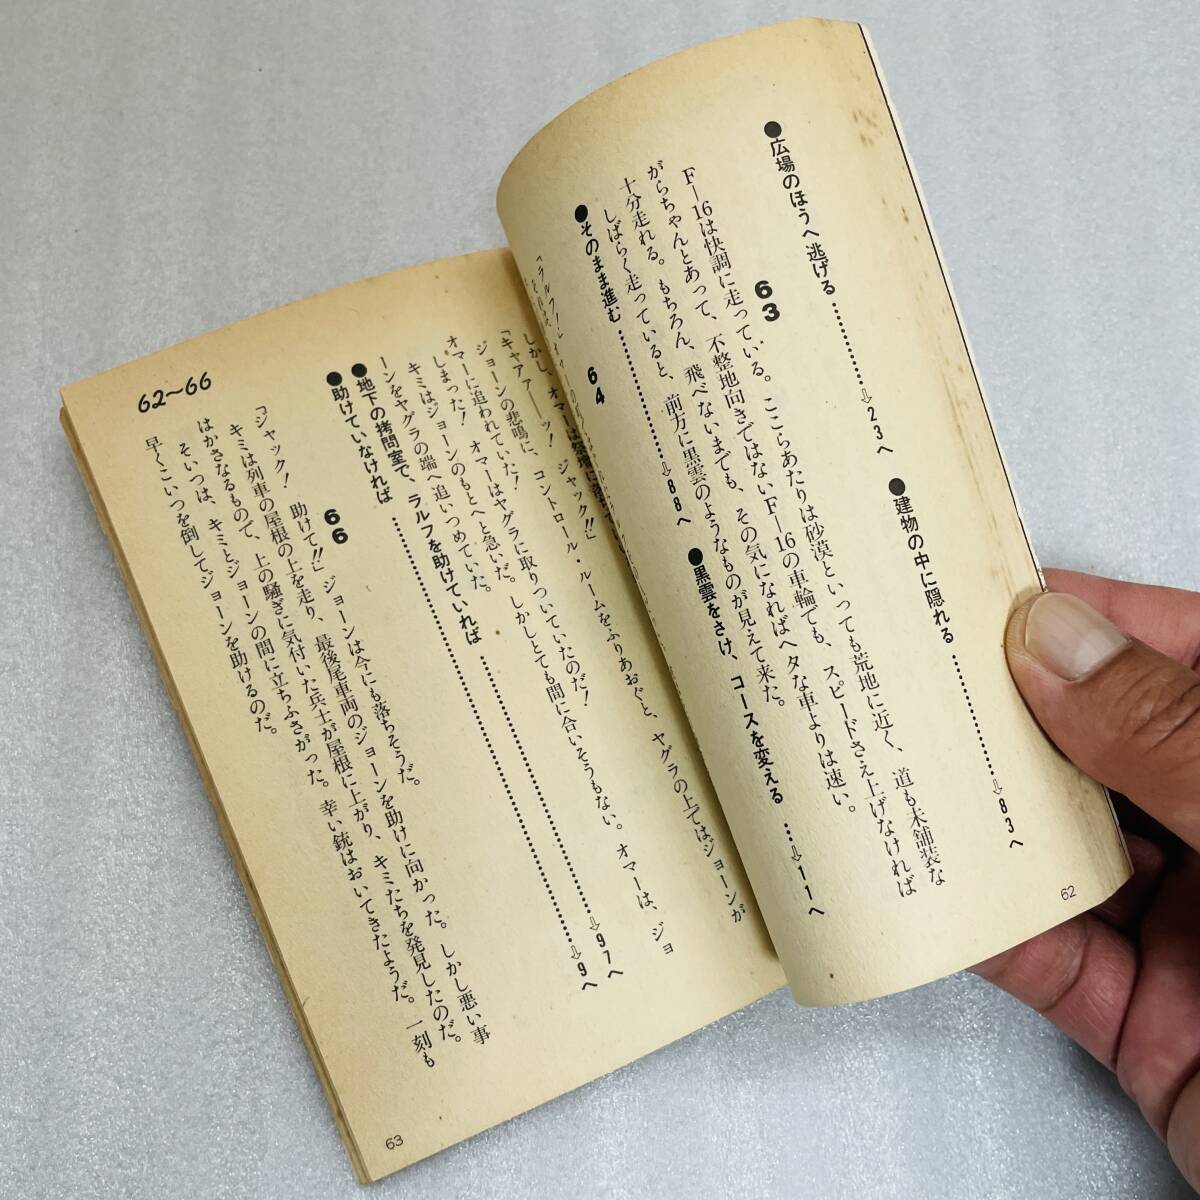 ●広場のほうへ逃げる…………⇨23へ
●建物の中に隠れる…………⇨83へ
63
F—16は快調に走っている。ここらあたりは砂漠といっても荒地に近く、道も未舗装な
がらちゃんとあって、不整地向きではないF—16の車輪でも、スピードさえ上げなければ
十分走れる。もちろん、飛べないまでも、その気になればヘタな車よりは速い。
しばらく走っていると、前方に黒雲のようなものが見えて来た。
●そのまま進む…………⇨88へ
●黒雲をさけ、コースを変える…⇨11へ
64
「ラルフ！
62
しかし、オマーは祭壇に
「キャアァーーッ！ ジャック!!」
ジョーンの悲鳴に、コントロール・ルームをふりあおぐと、ヤグラの上ではジョーンが
オマーに追われていた！
しまった！ オマーはヤグラに取りついていたのだ！
キミはジョーンのもとへと急いだ。しかしとても間に合いそうもない。オマーは、ジョ
ーンをヤグラの端へ追いつめていた。
●地下の拷問室で、ラルフを助けていれば…………⇨97へ
●助けていなければ…………⇨9へ
66
「ジャック！ 助けて!!」ジョーンは今にも落ちそうだ。
キミは列車の屋根の上を走り、最後尾車両のジョーンを助けに向かった。しかし悪い事
はかさなるもので、上の騒ぎに気付いた兵士が屋根に上がり、キミたちを発見したのだ。
そいつは、キミとジョーンの間に立ちふさがった。幸い銃はおいてきたようだ。一刻も
早くこいつを倒してジョーンを助けるのだ。
62〜66
63